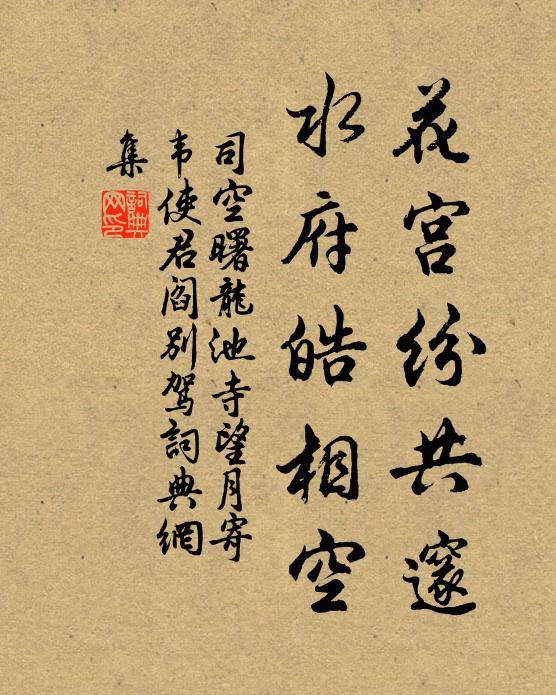 花宫紛共邃
水府皓相空
司空曙龍池寺望月寄
韦使君閻别駕詞典網
集
詞典
网印